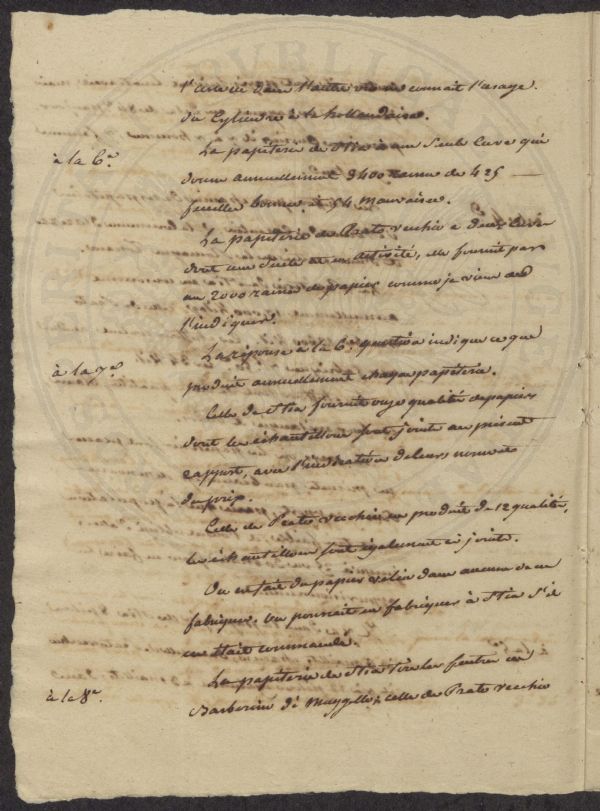 l'une ni dans l'autre on ne connait l'usage
du Cylindre à la hollandaise.
à la 6.e
La papeterie de Stia à une seule cuve qui
donne annuellement 3400 rames de 425
feuilles bonnes et 54 mauvaises.
La papeterie de Prato vecchio a deux cuves
dont une seule est en activité, elle fournit par
an 2000 rames de papier comme je viens de
l'indiquer.
à la 7.e
La réponse à la 6.e question indique ce que
produit annuellement chaque papeterie.
Celle de Stia fournit onze qualités de papiers
dont les échantillons sont joints au présent
rapport, avec l'indication de leurs noms et
du prix.
Celle de Prato vecchio en produit de 12 qualités,
les échantillons sont également ci joints.
On ne fait du papier velin dans aucune de ces
fabriques. On pourrait en fabriquer à Stia s'il
en était commandé.
à la 8.e
La papeterie de Stia tire les feutres de
Barberino di Mugello; celle de Prato vecchio